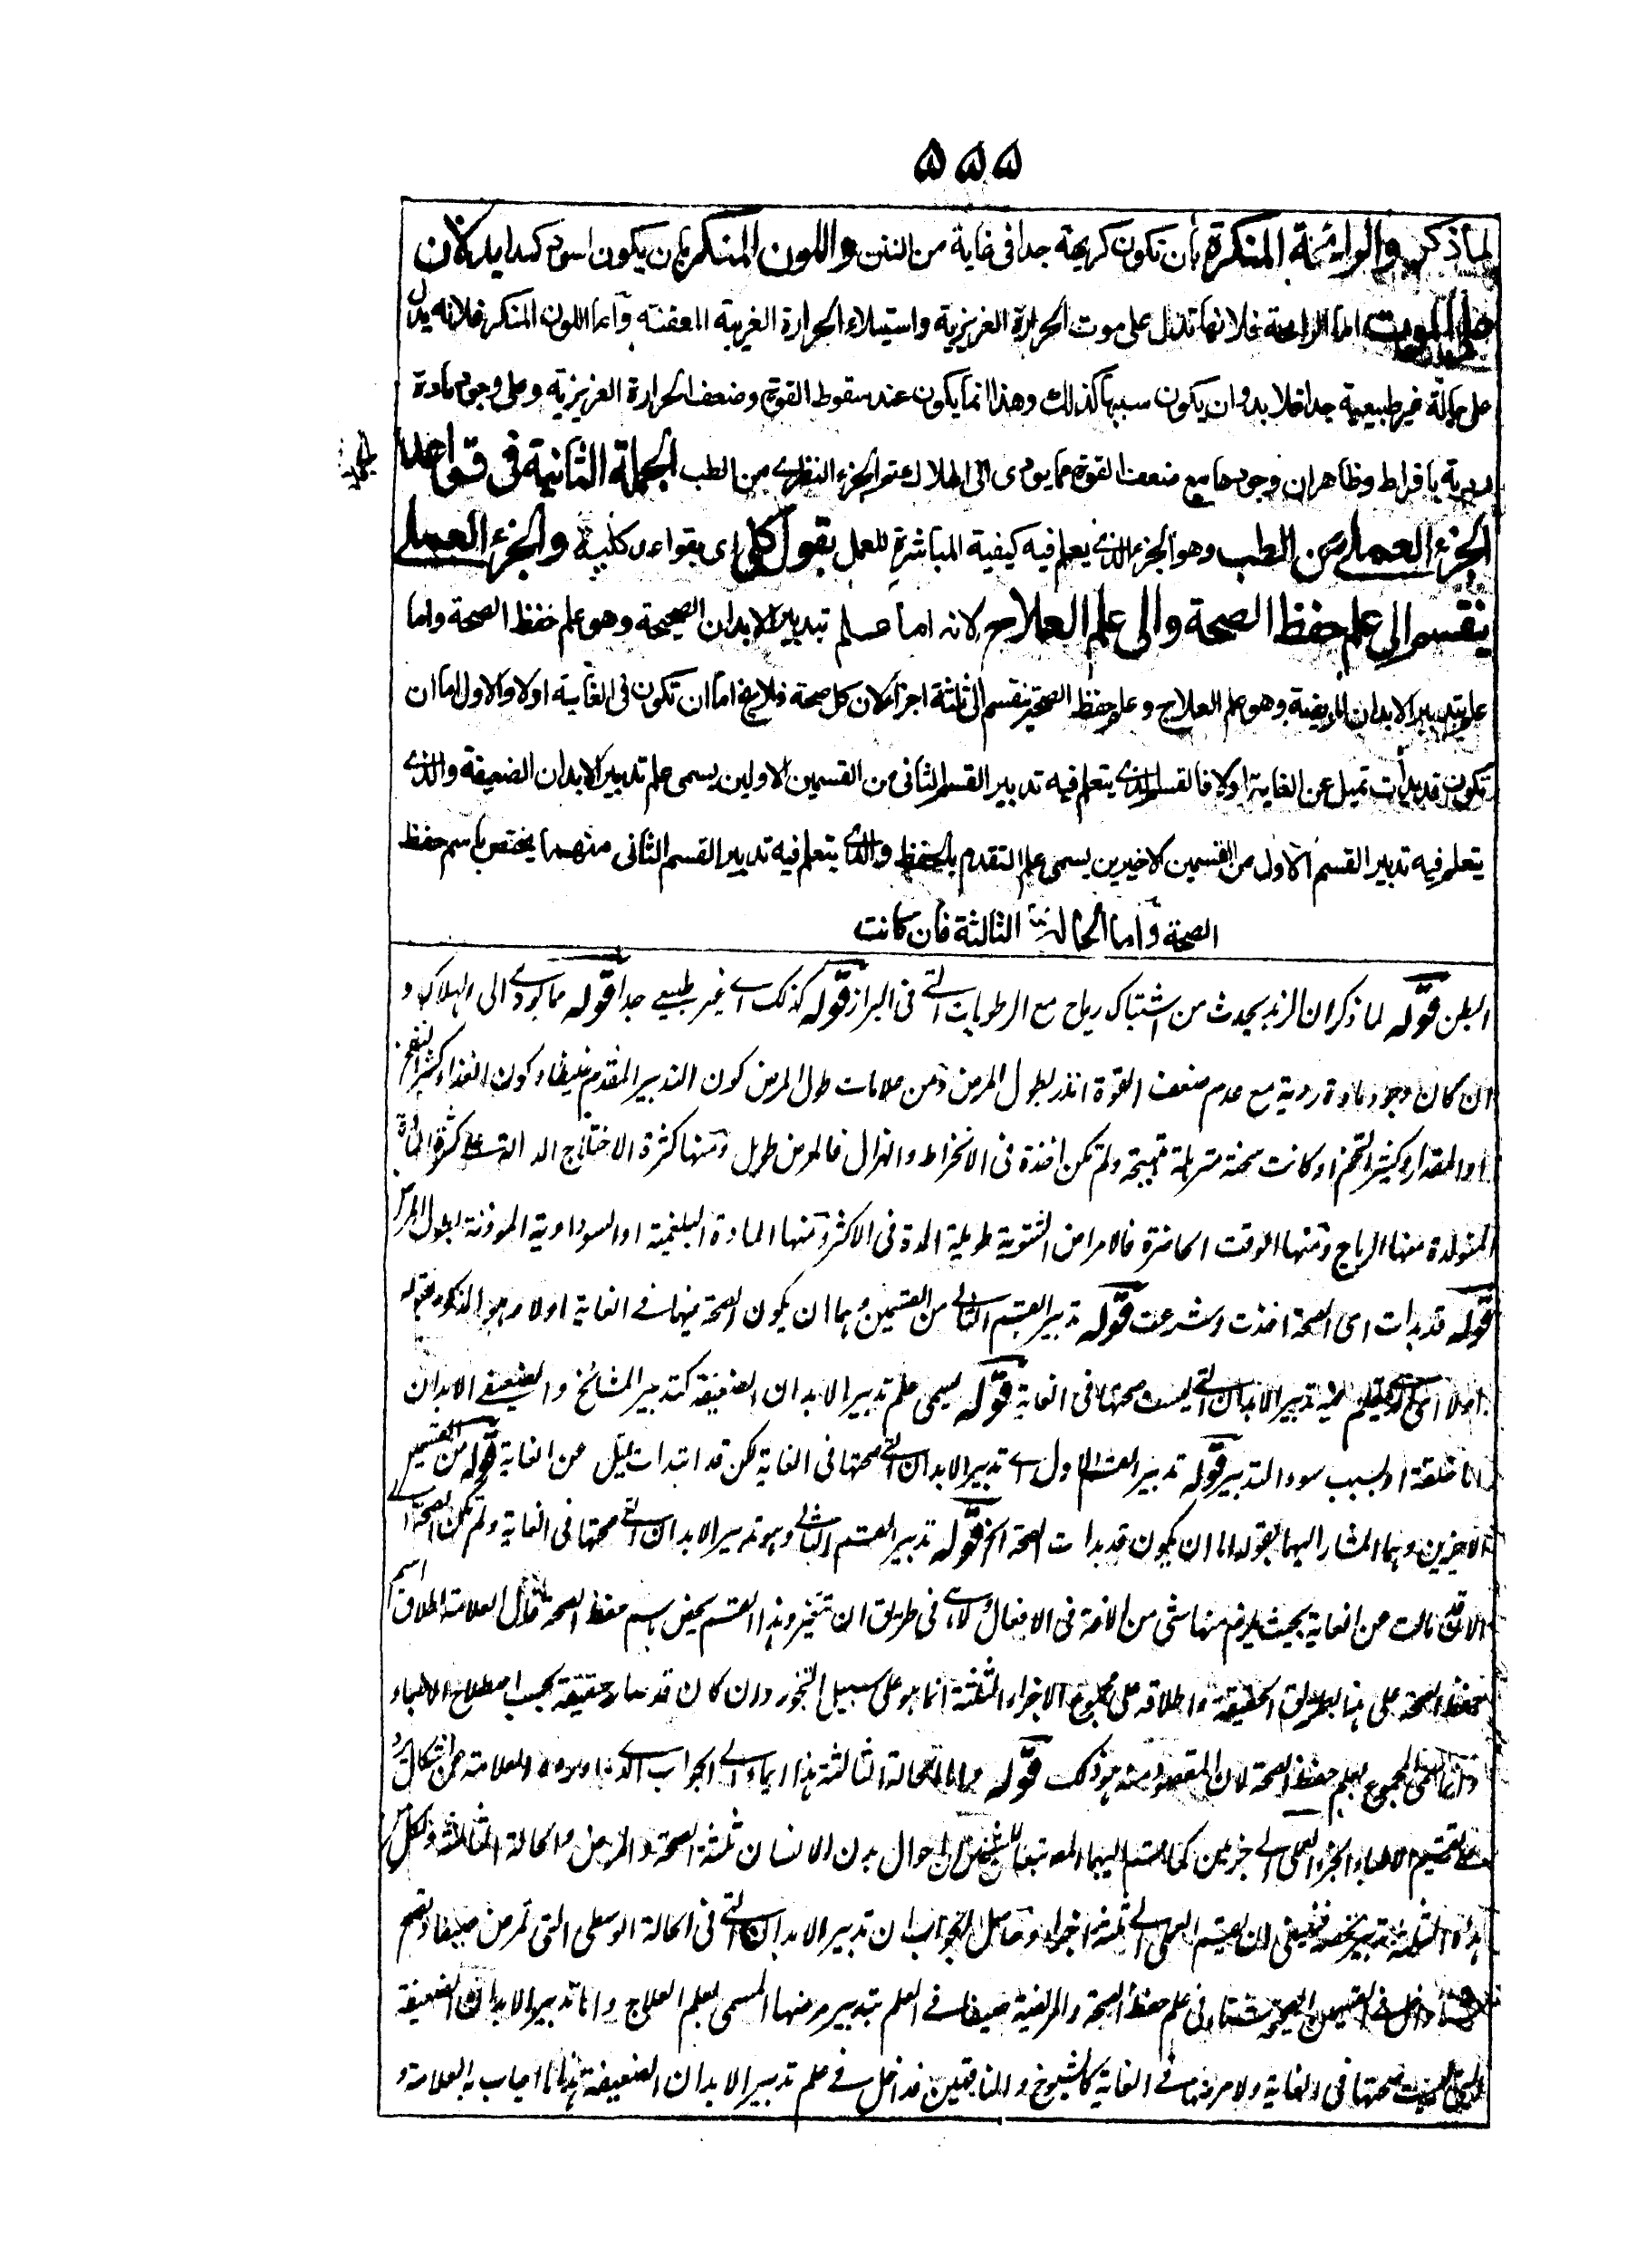 ۵۵۵
لما ذكر والرائحة المنكرة بأن تكون كريهة جدا فى غاية من النتن واللون المنكر بان يكون اسود كمدا يدلان
على الموت اما الرائحة فلانها تدل على موت الحرارة الغريزية واستيلاء الحرارة الغريبة المعفنة وأما اللون المنكر فلانه يدل
على حالة غير طبيعية جدا فلا بد وان يكون سببها كذلك وهذا انما يكون عند سقوط القوة وضعف الحرارة الغريزية وعلى وجود مادة
ردية بافراط وظاهر ان وجودها مع ضعف القوة مما يودى الى الهلاك تم الجزء النظرى من الطب الجملة الثانية فى قواعد
الجزء العملى من الطب وهو الجزء الذى يعلم فيه كيفية المباشرة للعمل بقول كلى اى بقواعد كلية والجزء العملى
ينقسم الى علم حفظ الصحة والى علم العلاج لانه اما علم تدبير الابدان الصحيحة وهو علم حفظ الصحة واما
علم تدبير الابدان المريضة وهو علم العلاج وعلم حفظ الصحة ينقسم الى ثلثة اجزاء لان كل صحة فلا يخ اما ان تكون فى الغاية اولا والاول اما ان
تكون قد بدأت تميل عن الغاية اولا فالقسم الذى يتعلم فيه تدبير القسم الثانى من القسمين الاولين يسمى علم تدبير الابدان الضعيفة والذى
يتعلم فيه تدبير القسم الاول من القسمين الاخيرين يسمى علم التقدم بالحفظ والذى يتعلم فيه تدبير القسم الثانى منهما يختص باسم حفظ
الصحة وأما الحالة الثالثة فان كانت
البطن قوله لما ذكر ان الزبد يحدث من اشتباك رياح مع الرطوبات التى فى البراز قوله كذلك اى غير طبيعى جدا قوله مما يودى الى الهلاك و
ان كان وجود مادة ردية مع عدم ضعف القوة انذر بطول المرض ومن علامات طول المرض كون التدبير المقدم غليظا وكون الغذاء كثير النفخ
او المقدار وكثير التخم او كانت سحنة مترهلة متهيجة ولم تكن اخذة فى الانخراط والهزال فالمرض طويل ومنها كثرة الاختلاج الدالة على كثرة المادة
المتولدة منها الرياح ومنها الوقت الحاضرة فالامراض الشتوية طويلة المدة فى الاكثر ومنها المادة البلغمية او السوداوية الموذنة بطول المرض
قوله قد بدات اى الصحة اخذت وشرعت قوله تدبير القسم الثانى من القسمين وهما ان يكون الصحة فيها فى الغاية اولا وهو المذكور بقوله
اولا اى الذى يتعلم فيه تدبير الابدان التى ليست صحتها فى الغاية قوله يسمى علم تدبير الابدان الضعيفة كتدبير المشائخ والضعيفى الابدان
اما خلقة او بسبب سوء التدبير قوله تدبير القسم الاول اى تدبير الابدان التى صحتها فى الغاية لكن قد ابتدات تميل عن الغاية قوله من القسمين
الاخيرين وهما المشار اليهما بقوله اما ان يكون قد بدات الصحة الخ قوله تدبير القسم الثانى وهو تدبير الابدان التى صحتها فى الغاية ولم تكن الصحة
مالت عن الغاية بحيث يلزم منها شئ من الافة فى الافعال فى طريق ان تتغير وهذا القسم يخص باسم حفظ الصحة قال العلامة اطلاق اسم
حفظ الصحة على هذا بطريق الحقيقة واطلاقه على مجموع الاجزاء الثلثة انما هو على سبيل التجوز وان كان قد صار حقيقة بحسب اصطلاح الاطباء
وانما سمى المجموع بعلم حفظ الصحة لان المقصود منه هو ذلك قوله واما الحالة الثالثة هذا ايماء الى الجواب الذى اورده العلامة عن
على تقسيم الاطباء الجزء العملى الى جزئين احوال بدن الانسان ثلثة الصحة والمرض والحالة الثالثة ولكل من
هذه الثلثة تدبير يخصه فينبغى ان يقسم العملى الى ثلثة اجزاء وحاصل الجواب ان تدبير الابدان التى فى الحالة الوسطى التى تمرض صيفا وتصح
شتاء داخل فى القسمين الصحيحة شتاء فى علم حفظ الصحة والمريضة صيفا فى العلم بتدبير مرضها المسمى بعلم العلاج واما تدبير الابدان الضعيفة
التى ليست صحتها فى الغاية ولا مرضها فى الغاية كالشيوخ والناقهين فداخل فى علم تدبير الابدان الضعيفة هذا ما اجاب به العلامة و